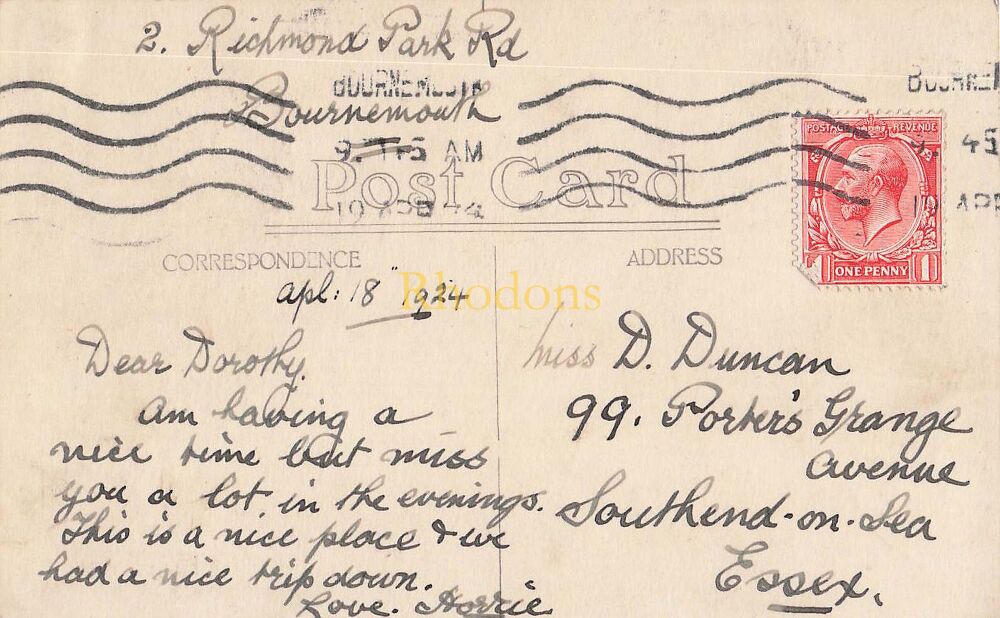 2. Richmond Park Rd
BOURNEMOUTH
Bournemouth
9. 45 AM
Post Card
19 APR 24
BOURNEM
45
19 APR
POSTAGE REVENUE
1 ONE PENNY 1
CORRESPONDENCE
ADDRESS
Rhodons
Apl: 18" 1924
Dear Dorothy.
Am having a
nice time but miss
you a lot, in the evenings.
This is a nice place & we
had a nice trip down.
Love. Horrie
Miss D. Duncan
99. Porter's Grange
Avenue
Southend-on-Sea
Essex.